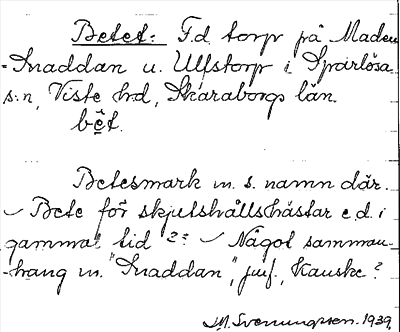 Betet: F.d. torp på Maden
-Snaddan u. Ulfstorp i Sparlösa
s:n, Viste hd, Skaraborgs län.
bēt.
Betesmark m. s. namn där.
✓ Bete för skjutshållshästar e.d. i
gammal tid?? ✓ Något samman-
-hang m. "Snaddan", jmf., Kanske?
M. Svenungsson. 1939.